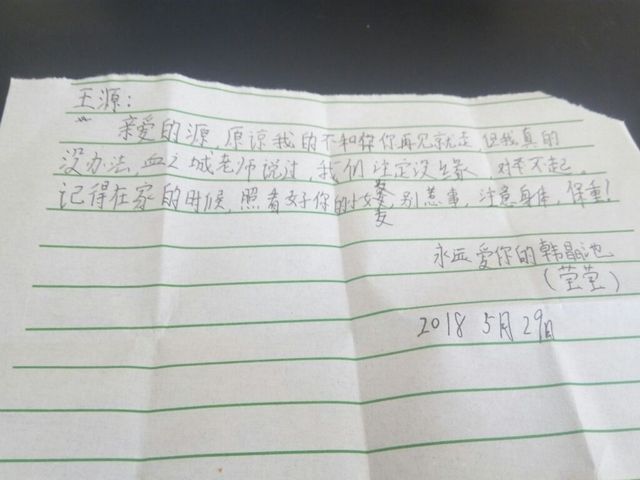 王源：
亲爱的源，原谅我的不和你你再见就走 但我真的
没办法，血之城老师说过，我们注定没缘，对不起。
记得在家的时候，照看好你的女友，别惹事，注意身体，保重！
永远爱你的韩晶池
（莹莹）
2018 5月29日